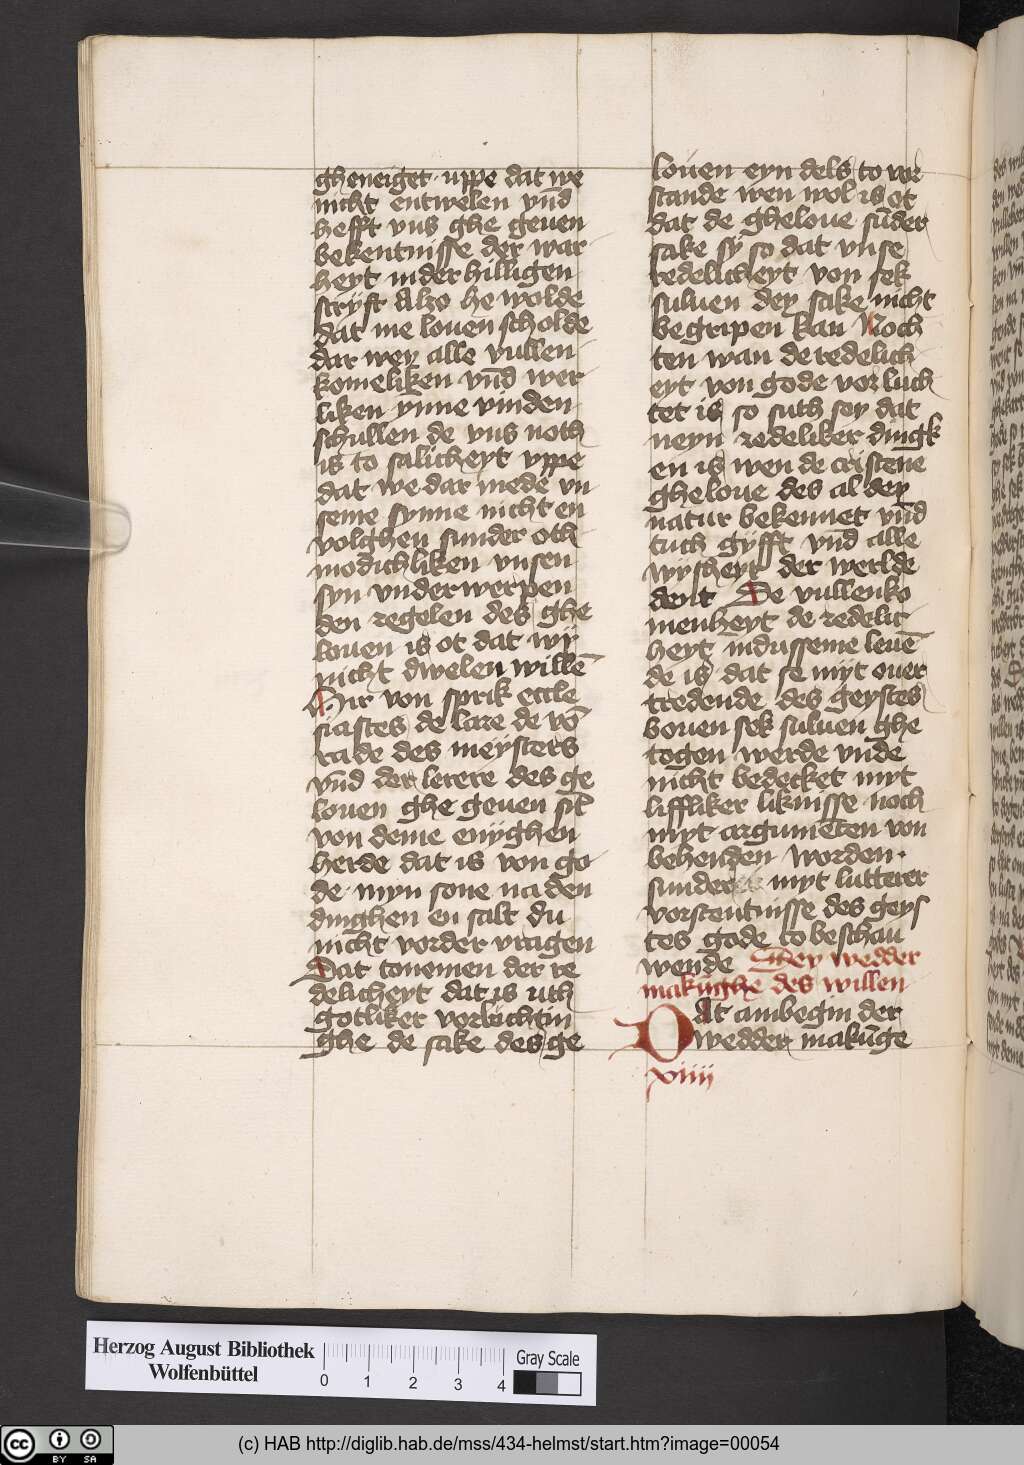 gheneiget · uppe dat we
nicht entwelen vnd̄
hefft vns ghe geuen
bekentnisse der war
heyt in der hilligen
scryft Alzo he wolde
dat me louen scholde
dar wey alle vullen
komeliken vnd̄ wer
liken ynne vinden
schullen de vns noth
is to salicheyt vppe
dat we dar mede vn
seme synne nicht en
volghen sunder oth
modichliken vnsen
syn vnderwerpen
den regelen des ghe
louen is ot dat wy
nicht dwelen willē
Hir von sprik eccle
siastes de lare de vō
rade des meysters
vnd̄ der lerere des ge
louen ghe geuen sīt
von deme enyghen
herde dat is von go
de · myn sone na den
dinghen en salt du
nicht vorder vragen
Dat tonemen der re
delicheyt dat is uth
gotliker vorluchtin
ghe de sake des ge
louen eyn dels to vor
stande wen wol is ot
dat de gheloue sūder
sake sy so dat vnse
redelicheyt von sek
suluen dey sake nicht
begripen kan Noch
ten wan de redelich
eyt von gode vorluch
tet is so suth sey dat
neyn redeliker dingk
en is wen de cristene
gheloue des al dey
natur bekennet vnd̄
tuch gyfft vnd̄ alle
wysheyt der werlde
deint De vullenko
menheyt de redelic
heyt in dusseme leuē
de is dat se myt ouer
tredende des geystes
bouen sek suluen ghe
togen werde vnde
nicht bedecket myt
liffliker liknisse noch
myt argumēten von
behenden worden ·
sunder myt lutterer
vorstentnisse des geys
tes gode to beschau
wende Dey wedder
makūghe des willen
Dat ambegin der
wedder makūge
xiiii
Herzog August Bibliothek
Wolfenbüttel
0 1 2 3 4
Gray Scale
cc BY SA
(c) HAB http://diglib.hab.de/mss/434-helmst/start.htm?image=00054